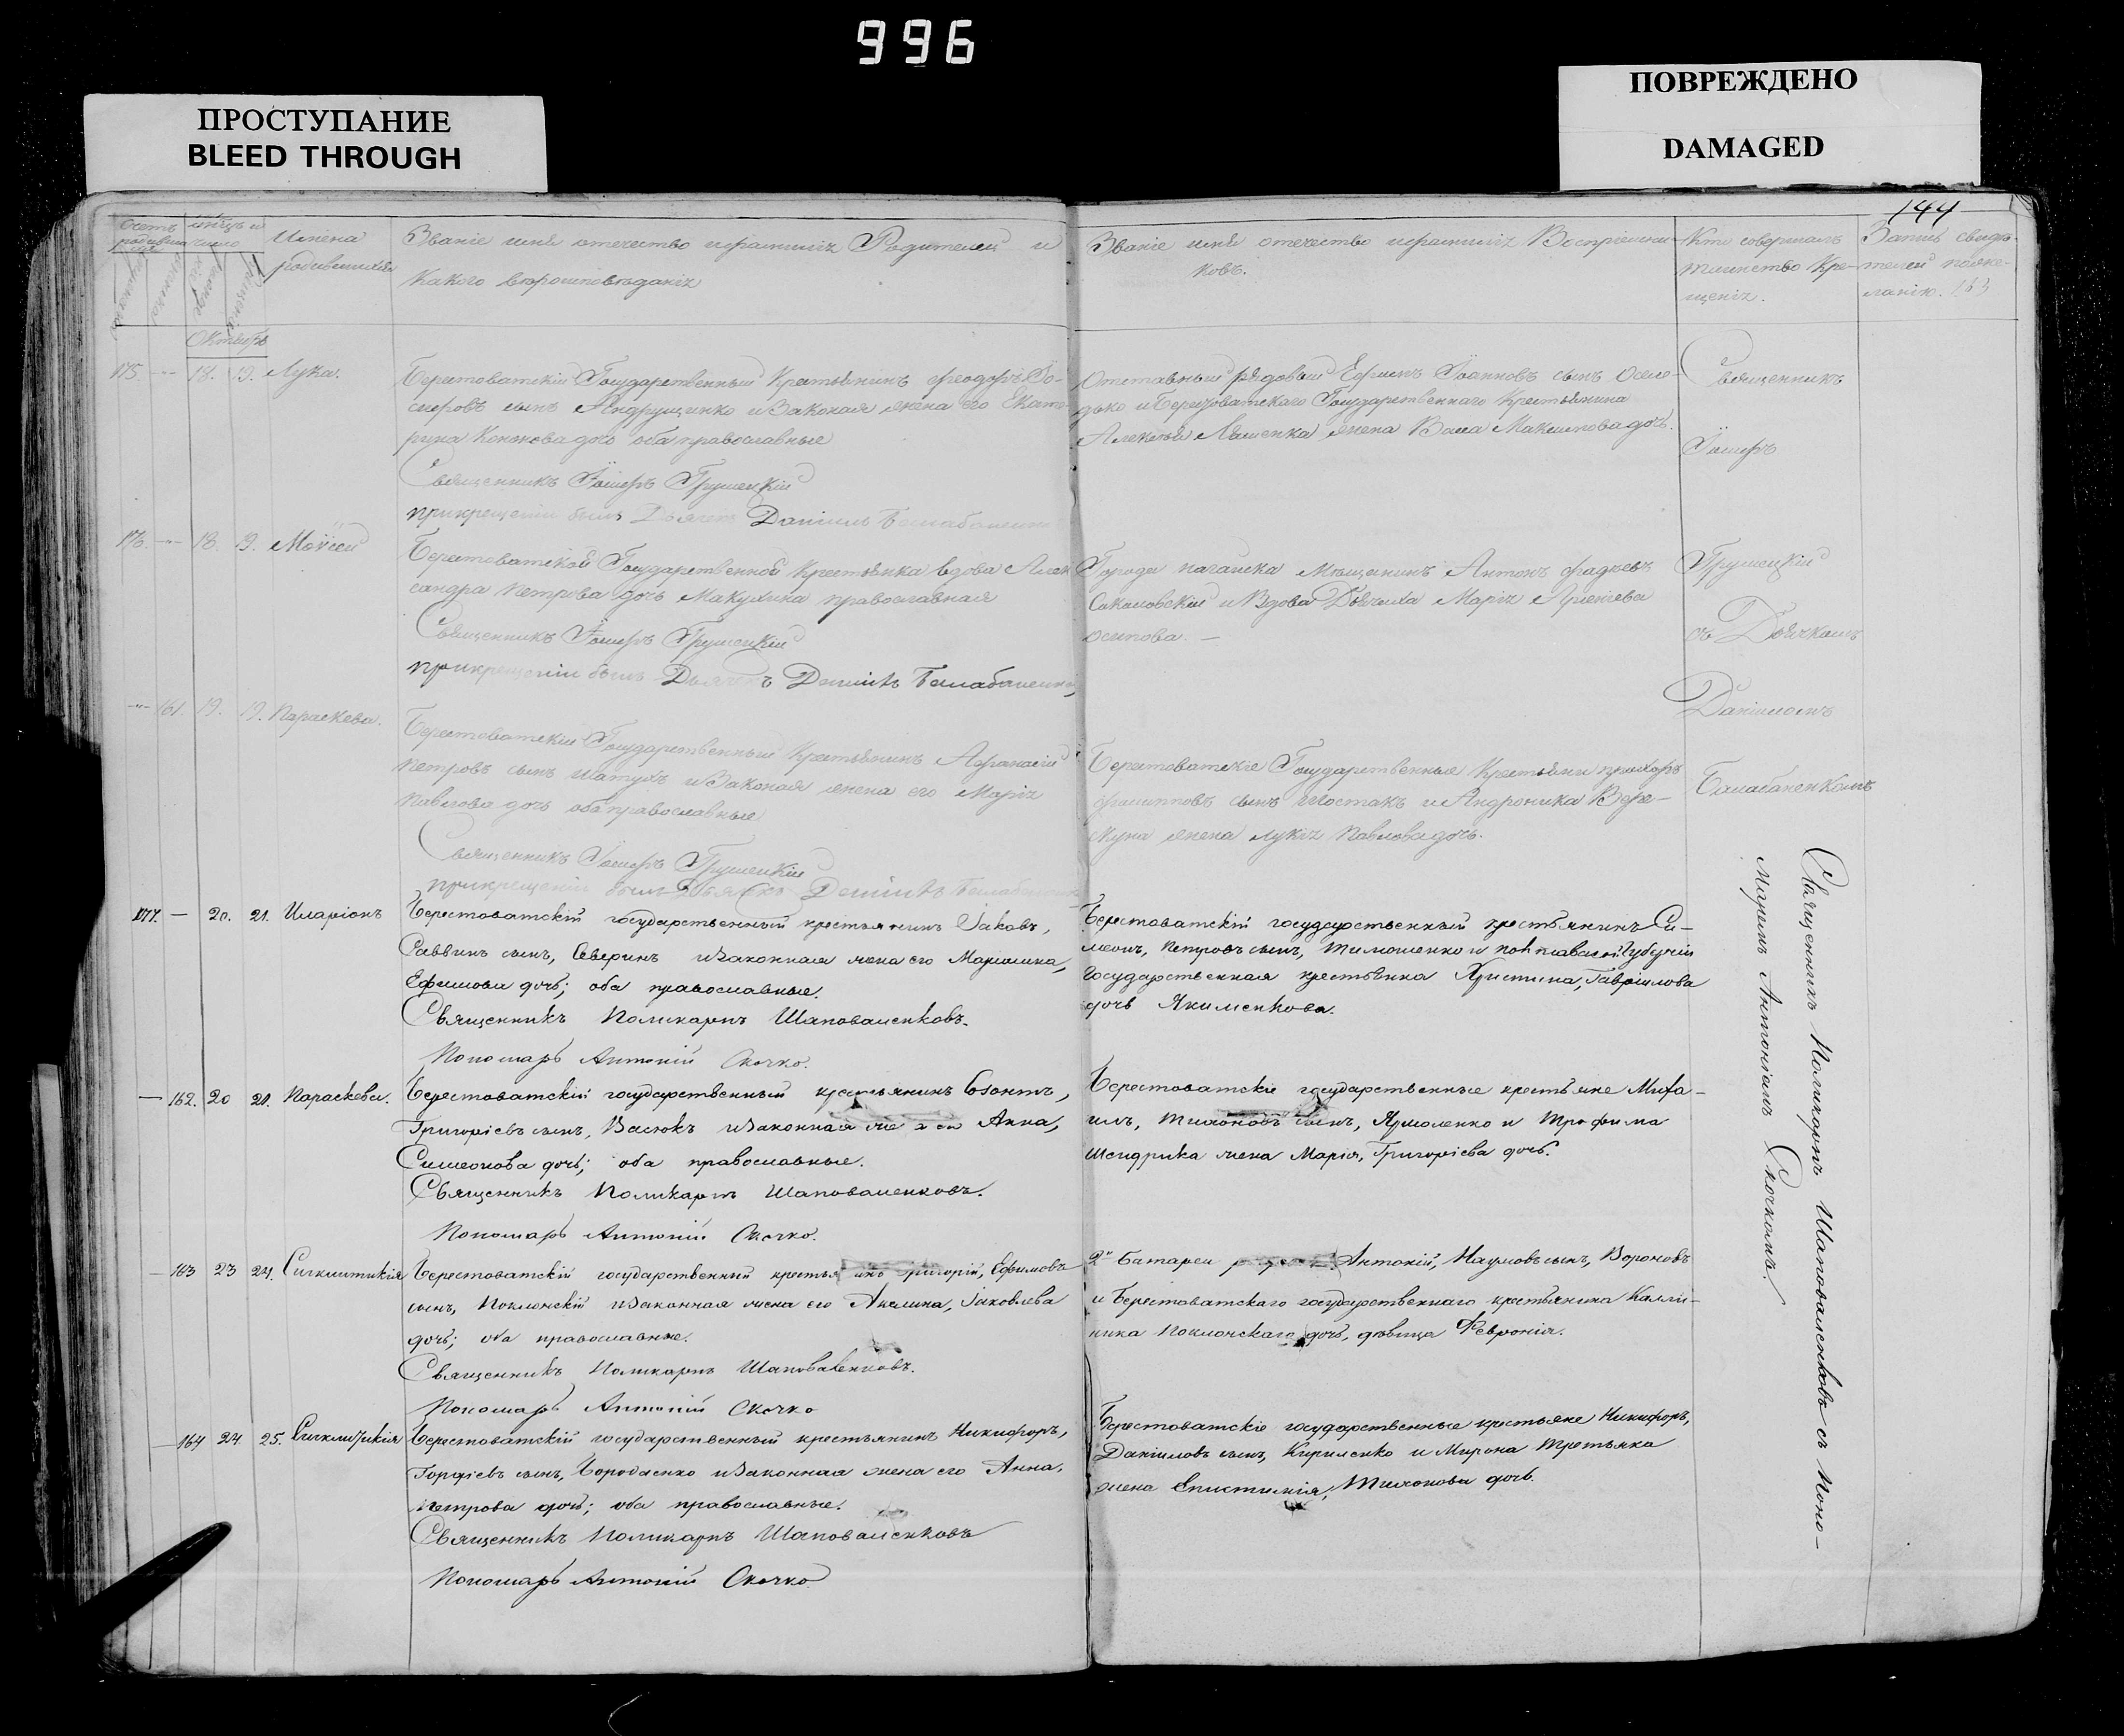 996
ПРОСТУПАНИЕ
BLEED THROUGH
ПОВРЕЖДЕНО
DAMAGED
144
Счетъ родившихся
Мѣсяцъ и число
Имена
родившихся
Званіе имя отечество и фамилія Родителей и
какого вѣроисповѣданія
Званіе имя отечество и фамилія Воспріемни-
ковъ.
Кто совершалъ
таинство Кре-
щенія.
Запись свидѣ-
телей по же-
ланію.
Октябрь
175. — 18. 19. Лука.
Берестоватскій Государственный Крестьянинъ Феодоръ
сынъ Андрущинко и Законая жена его Екате-
рина Кононова дочь оба православные
Священникъ Іосифъ Грушецкій
при крещеніи былъ Дьячекъ Даніилъ Балабаненко
Отставный рядовый Ефимъ Іоанновъ сынъ Оселе-
дько и Берестоватскаго Государственнаго Крестьянина
Алексѣя Ляшенка жена Васса Максимова дочь.
176. — 18. 19. Моѵсей
Берестоватской Государственной Крестьянка вдова Алек
сандра Петрова дочь Макухина православная
Священникъ Іосифъ Грушецкій
при крещеніи былъ Дьячекъ Даніилъ Балабаненко
Города Мѣщанинъ Антонъ Фадѣевъ
Сокаловскій и Вдова Дьячиха Марія
Осипова. —
— 161. 19. 19. Параскева.
Берестоватскій Государственный Крестьянинъ Афанасій
Петровъ сынъ Шатухъ и Законая жена его Марія
Павлова дочь оба православные
Священникъ Іосифъ Грушецкій
при крещеніи былъ Дьячекъ Даніилъ Балабаненко
Берестоватскіе Государственные Крестьяни Прохоръ
Филипповъ сынъ Шостакъ и Андроника Вере-
жуна жена Лукія Павлова дочь.
Священникъ
Іосифъ
Грушецкій
съ Дьячкомъ
Даніиломъ
Балабаненкомъ
177. — 20. 21. Иларіонъ
Берестоватскій государственный крестьянинъ Іаковъ,
Саввинъ сынъ, Северинъ и законная жена его Маріамна,
Ефимова дочь; оба православные.
Священникъ Поликарпъ Шаповаленковъ.
Пономарь Антоній Скочко.
Берестоватскій государственный крестьянинъ Си-
меонъ, Петровъ сынъ, Тимошенко и Полтавской Губерніи
государственная крестьянка Христина, Гавріилова
дочь Якименкова.
— 162. 20 21. Параскева.
Берестоватскій государственный крестьянинъ Созонтъ,
Григоріевъ сынъ, Васюкъ и законная жена его Анна,
Симеонова дочь; оба православные.
Священникъ Поликарпъ Шаповаленковъ.
Пономарь Антоній Скочко.
Берестоватскіе государственные крестьяне Миха-
илъ, Тихоновъ сынъ, Ярмоленко и Трофима
Шендрика жена Марія, Григоріева дочь.
— 163 23 24. Сигклитикія
Берестоватскій государственный крестьянинъ Григорій, Ефимовъ
сынъ, Поклонскій и законная жена его Акилина, Іаковлева
дочь; оба православные.
Священникъ Поликарпъ Шаповаленковъ.
Пономарь Антоній Скочко
2й Батареи Антоній, Наумовъ сынъ, Вороновъ
и Берестоватскаго государственнаго крестьянина Калли-
ника Поклонскаго дочь, дѣвица Февронія.
— 164 24 25. Сигклитикія
Берестоватскій государственный крестьянинъ Никифоръ,
Гордіевъ сынъ, Бородаенко и законная жена его Анна,
Петрова дочь; оба православные.
Священникъ Поликарпъ Шаповаленковъ
Пономарь Антоній Скочко
Берестоватскіе государственные крестьяне Никифоръ,
Даніиловъ сынъ, Кириленко и Мирона Третьяка
жена Епистимія, Тихонова дочь.
Священникъ Поликарпъ Шаповаленковъ съ Поно-
маремъ Антоніемъ Скочкомъ.